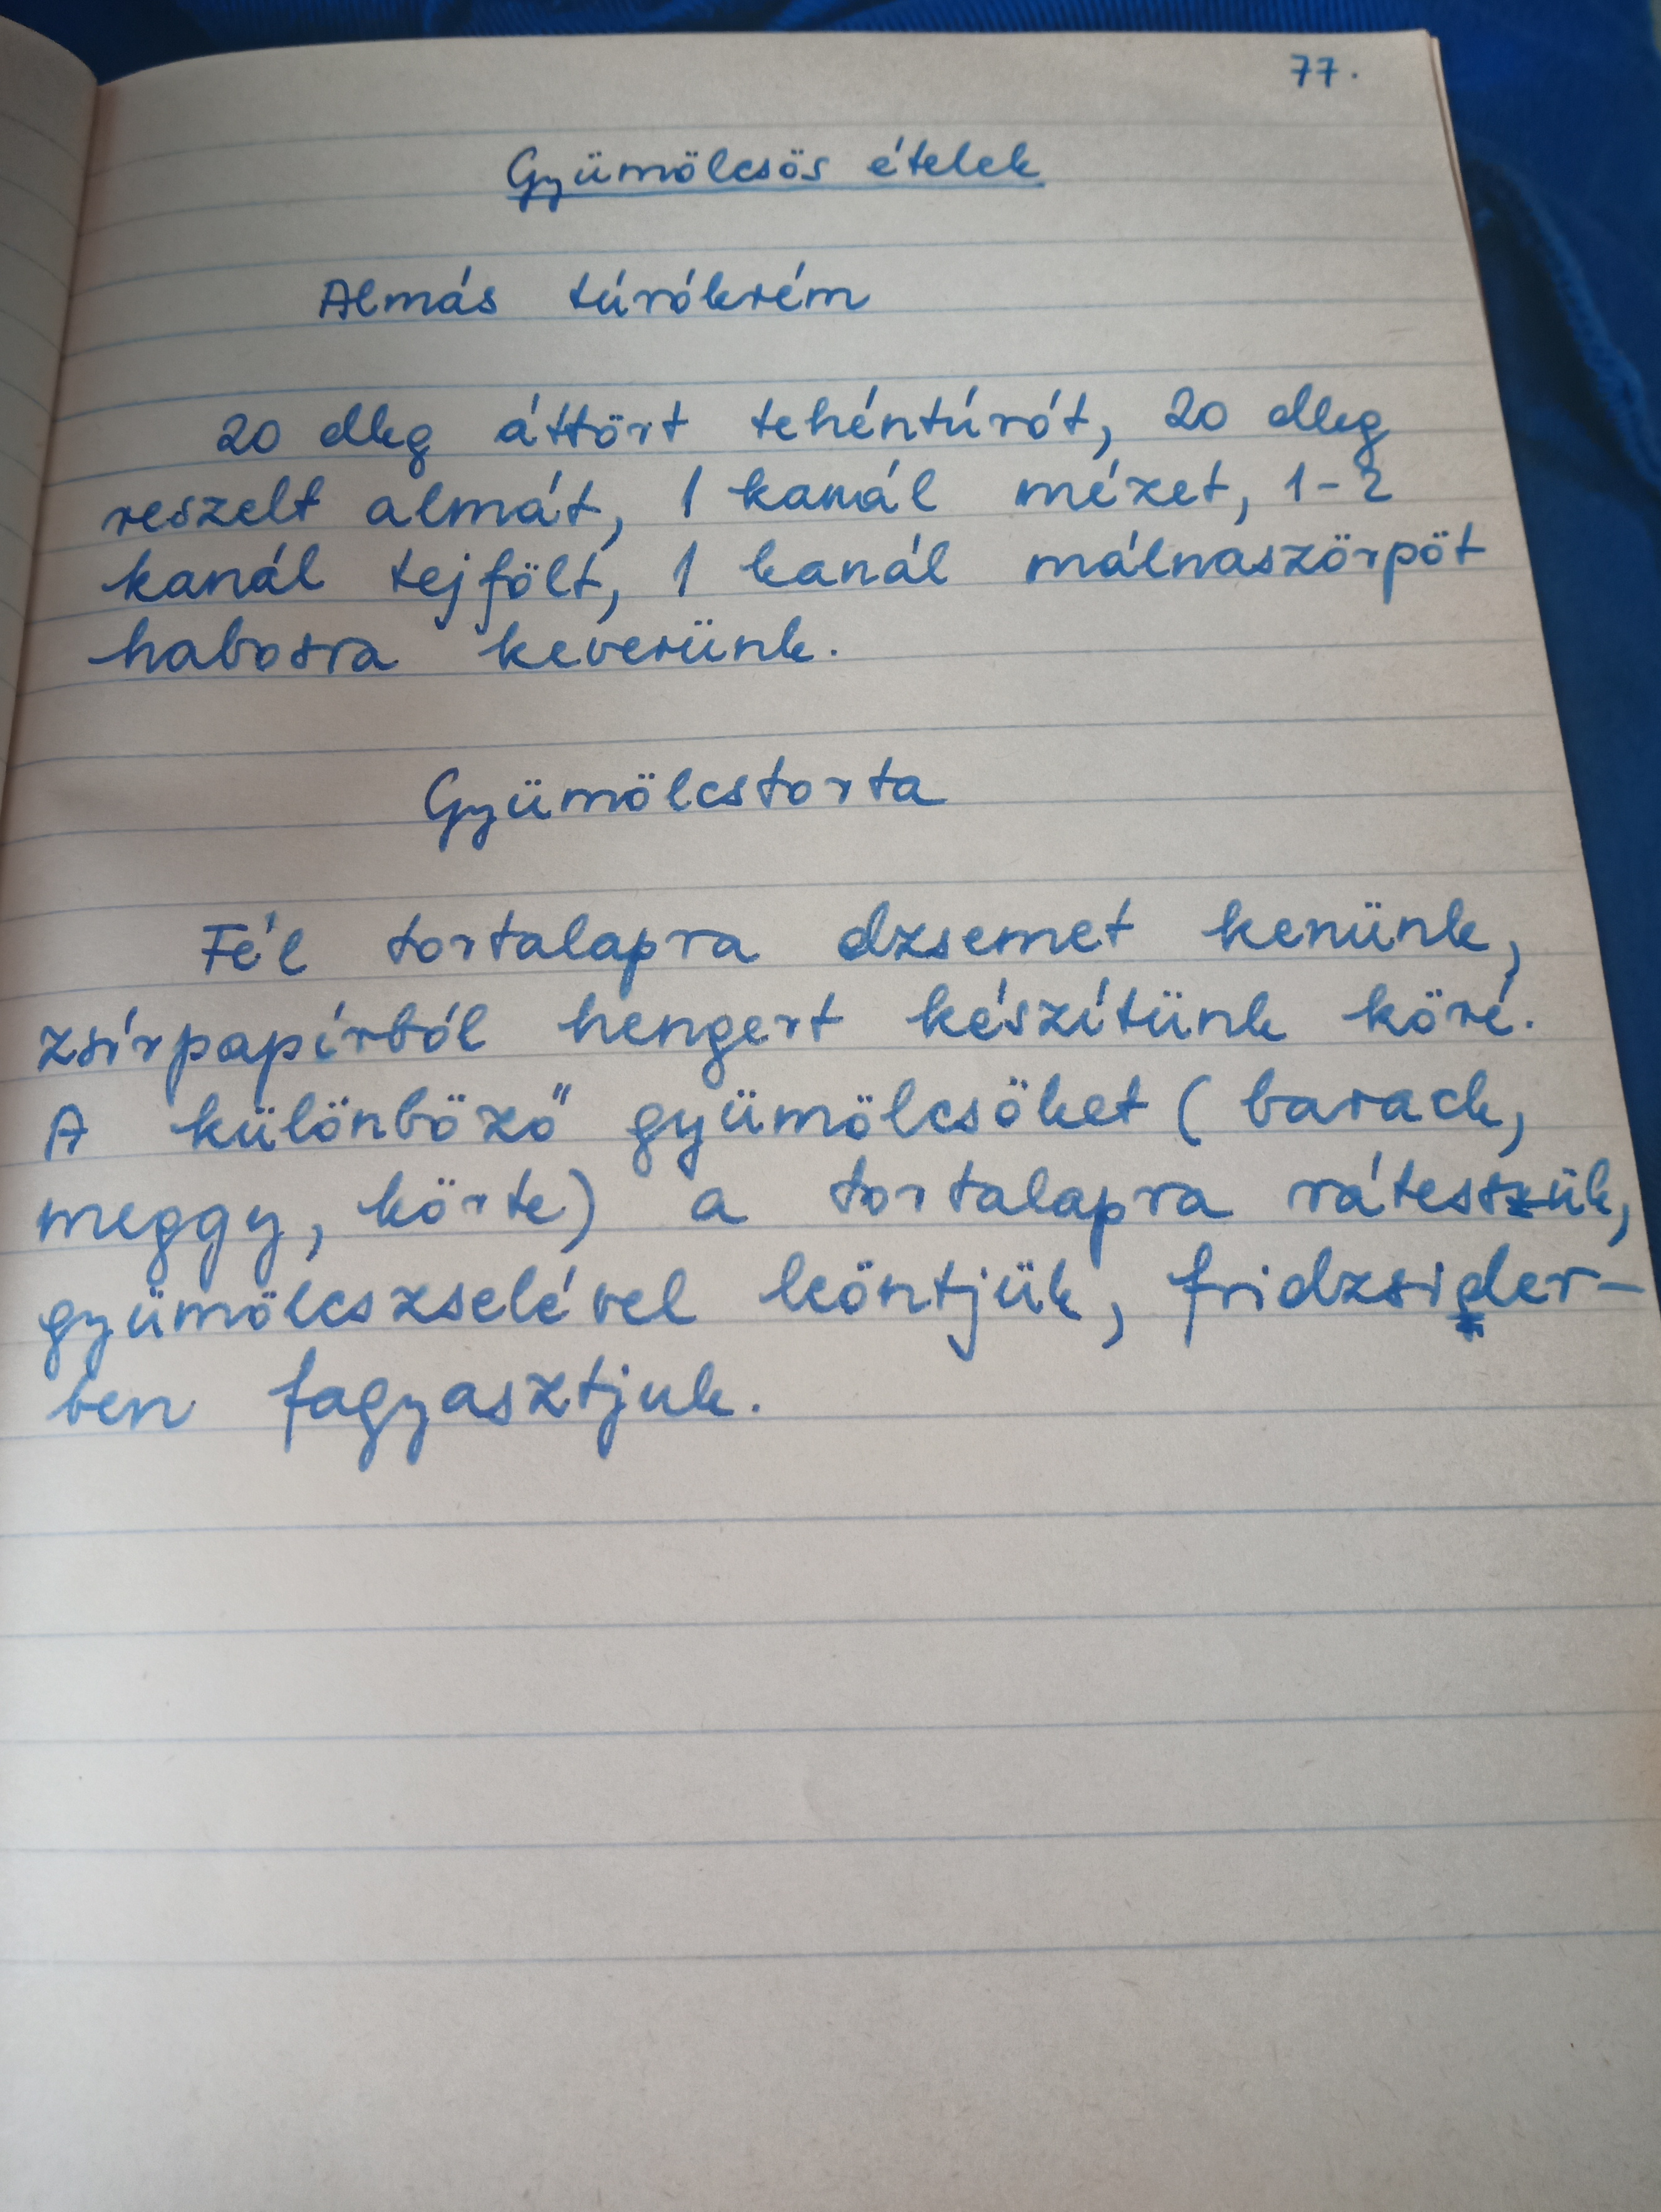 77.
Gyümölcsös ételek
Almás túrókrém
20 dkg áttört tehéntúrót, 20 dkg
reszelt almát, 1 kanál mézet, 1-2
kanál tejfölt, 1 kanál málnaszörpöt
habosra keverünk.
Gyümölcstorta
Fél tortalapra dzsemet kenünk,
zsírpapírból hengert készítünk köré.
A különböző gyümölcsöket (barack,
meggy, körte) a tortalapra rátesszük,
gyümölcszselével leöntjük, fridzsider-
ben fagyasztjuk.